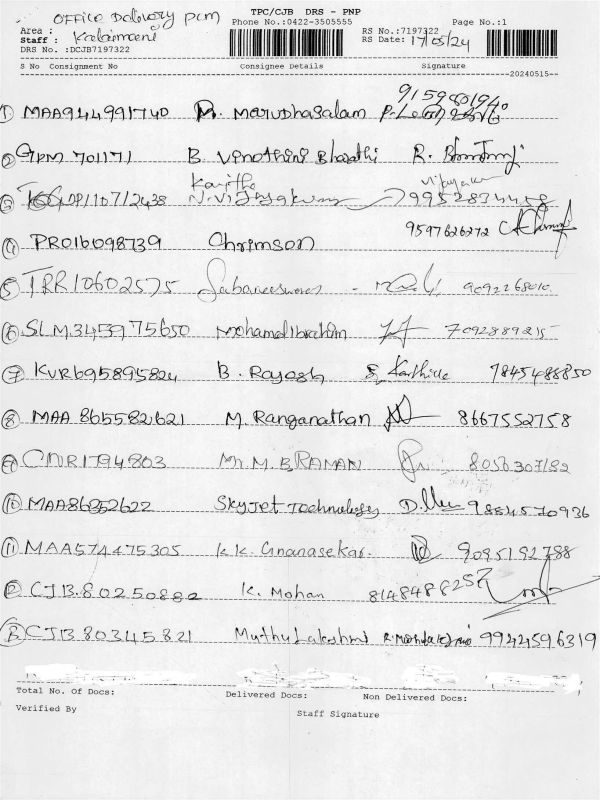 TPC/CJB DRS - PNP
Office Delivery pcm
Area :
Phone No.:0422-3505555
RS No.:7197322
Page No.:1
Staff : Kalaimani
RS Date: 17/05/24
DRS No. :DCJB7197322
S No Consignment No Consignee Details Signature
20240515
1 MAA944991740 M. Marudhasalam 9159801940
2 GPM 701171 B. Vinothini Bharathi
3 Kavitha N. Vijayakumar Vijayakumar 9952834458
4 PRO16098739 Chrimson 9597626272
5 TRR10602575 Sabareeswaran 9092268010
6 SLM345975650 Mohamed Ibrahim 7092889215
7 KVR695895824 B. Rajesh S. Karthick 7845488850
8 MAA 865582621 M. Ranganathan 8667552758
9 CNR1794803 Mr. M. B. RAMAN 8056307182
10 MAA86352622 Skyjet Technologies 9884570936
11 MAA574475305 K.K. Gnanasekar. 9095192788
12 CJB.80250882 K. Mohan 8148488257
13 CJB 80345821 Muthulakshmi 9944596319
Total No. Of Docs: Delivered Docs: Non Delivered Docs:
Verified By Staff Signature